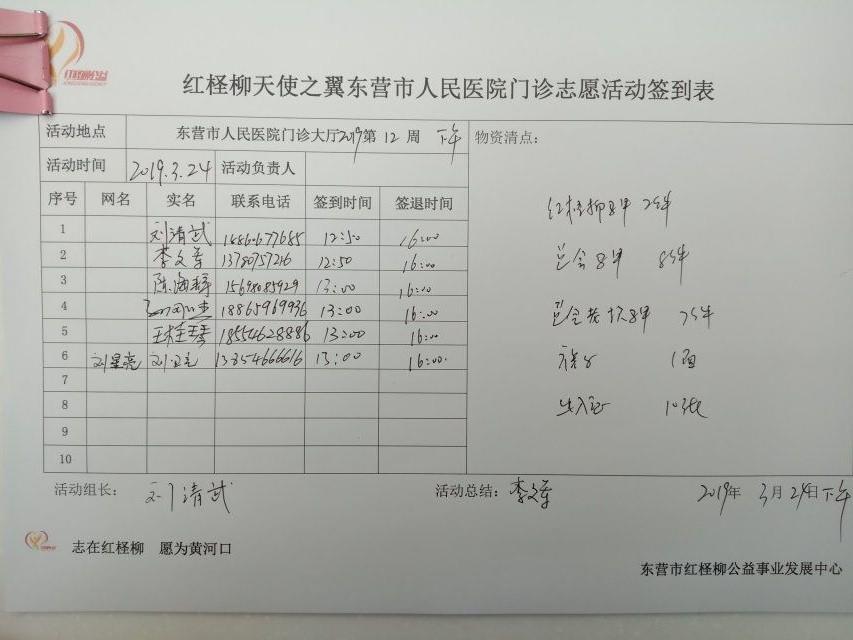 红柽柳公益
红柽柳天使之翼东营市人民医院门诊志愿活动签到表
活动地点 东营市人民医院门诊大厅2019第 12 周 下午 物资清点:
活动时间 2019.3.24 活动负责人
序号 网名 实名 联系电话 签到时间 签退时间
1 刘清武 12:50 16:00
2 李文军 13780757216 12:50 16:00
3 陈海 15698085929 13:00 16:00
4 18865969936 13:00 16:00
5 王桂琴 18554628886 13:00 16:00
6 刘星亮 刘卫亮 13354666616 13:00 16:00.
7
8
9
10
红柽柳马甲 2件
总会马甲 8件
马甲 7件
1面
出入证 10张
活动组长: 刘清武 活动总结: 李文军 2019年 3月 24日下午
志在红柽柳 愿为黄河口
东营市红柽柳公益事业发展中心